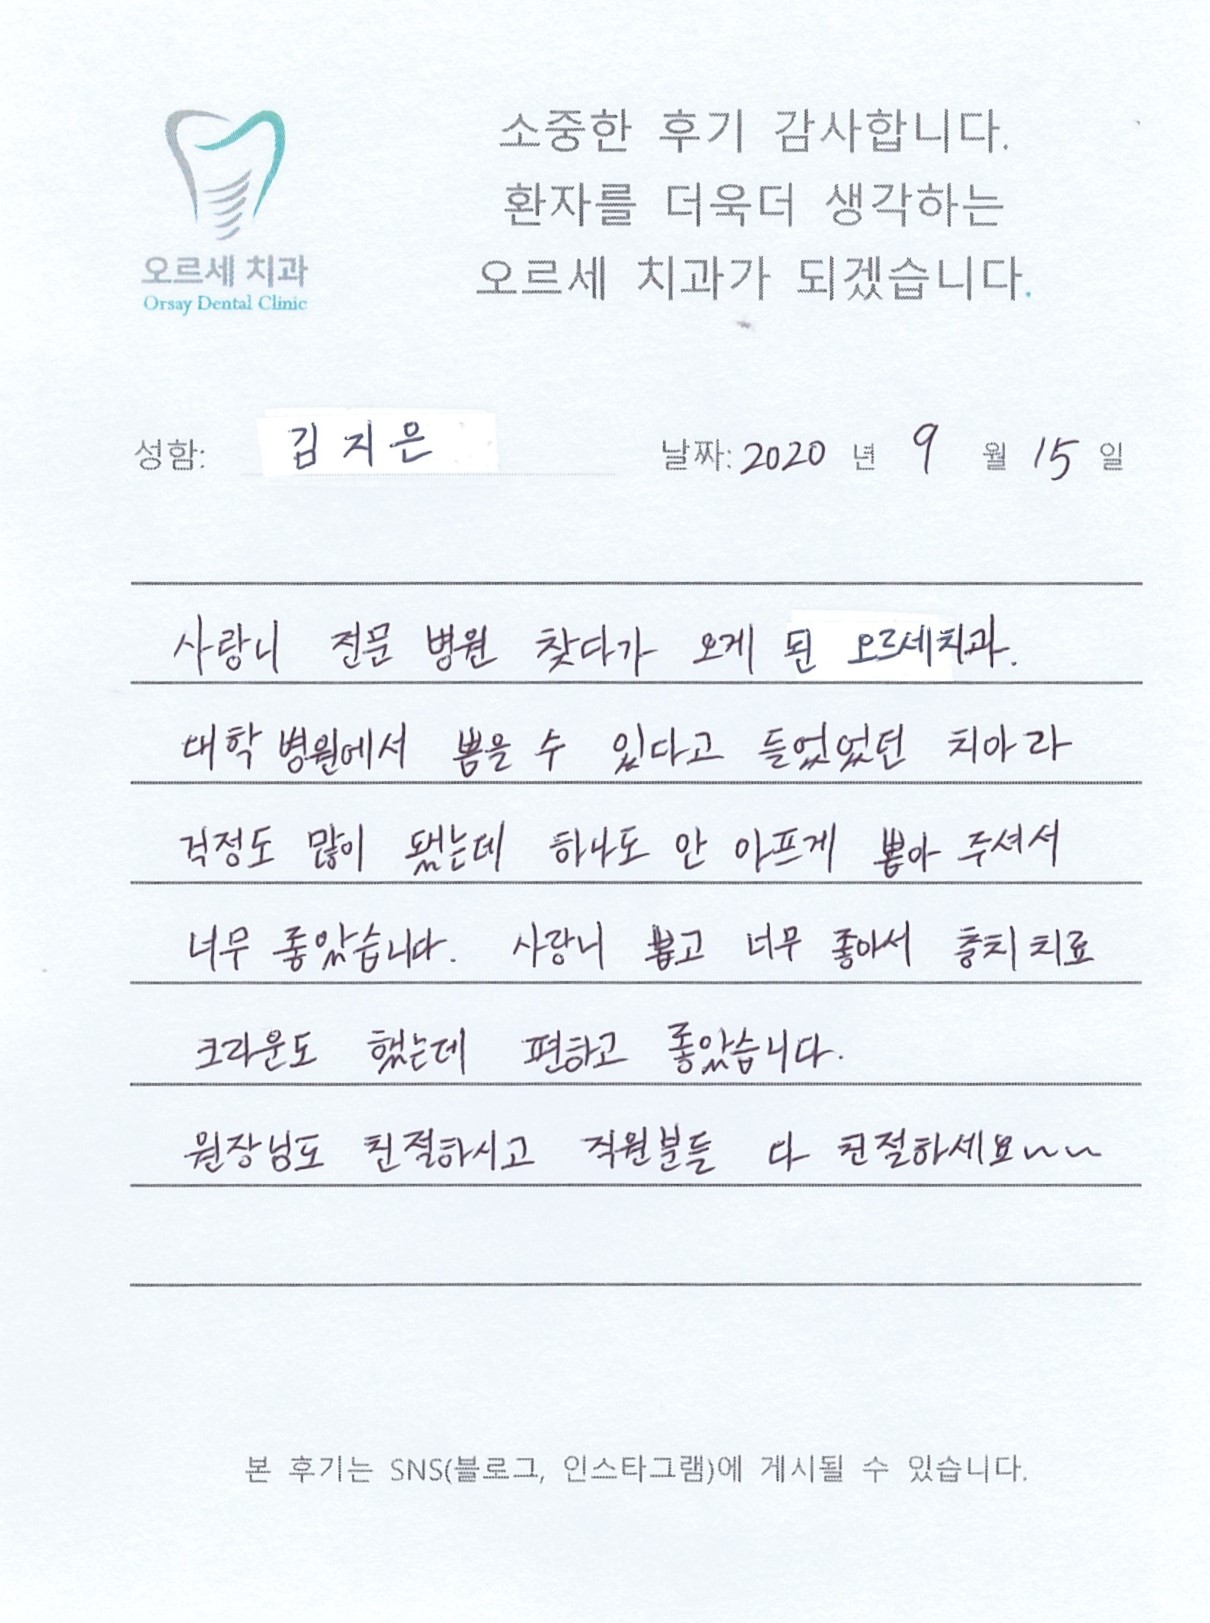 소중한 후기 감사합니다.
환자를 더욱더 생각하는
오르세 치과가 되겠습니다.
오르세 치과
Orsay Dental Clinic
성함: 김지은 날짜: 2020 년 9 월 15 일
사랑니 전문 병원 찾다가 오게 된 오르세치과.
대학병원에서 뽑을 수 있다고 들었었던 치아라
걱정도 많이 됐는데 하나도 안 아프게 뽑아 주셔서
너무 좋았습니다. 사랑니 뽑고 너무 좋아서 충치치료
크라운도 했는데 편하고 좋았습니다.
원장님도 친절하시고 직원분들 다 친절하세요~~
본 후기는 SNS(블로그, 인스타그램)에 게시될 수 있습니다.